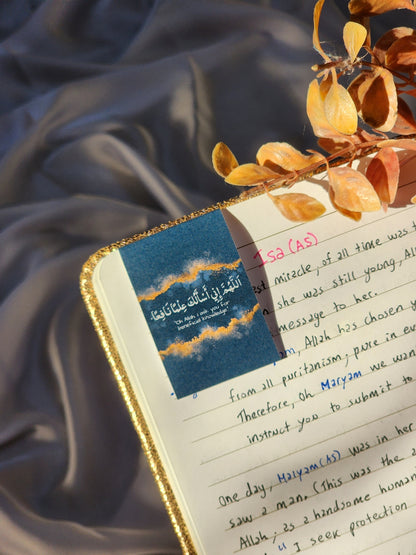 اللَّهُمَّ إِنِّي أَسْأَلُكَ عِلْمًا نَافِعًا
"Oh Allah I ask you for
beneficial knowledge"
Isa (AS)
st miracle, of all time was t
she was still young, Al
message to her.
am, Allah has chosen y
from all puritanism; pure in ev
Therefore, Oh Maryam we wan
instruct you to submit to
One day, Maryam (AS) was in her
saw a man. (This was the a
Allah, as a handsome human
"I seek protection